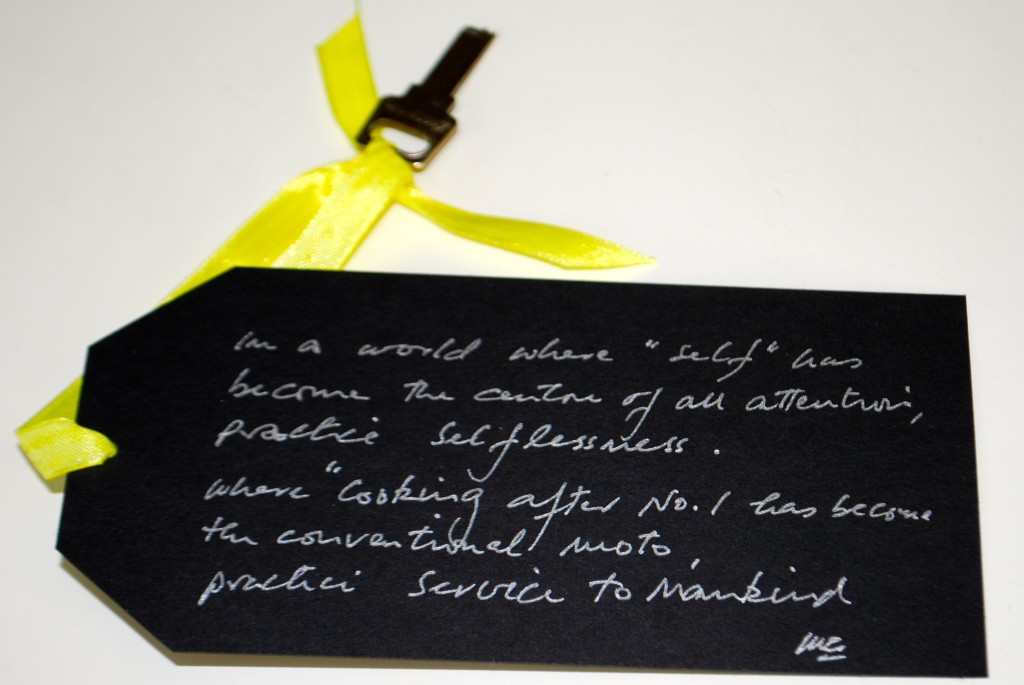 In a world where "self" has
become the centre of all attention,
practice selflessness.
where "Looking after No. 1 has become
the conventional moto,
practice service to Mankind